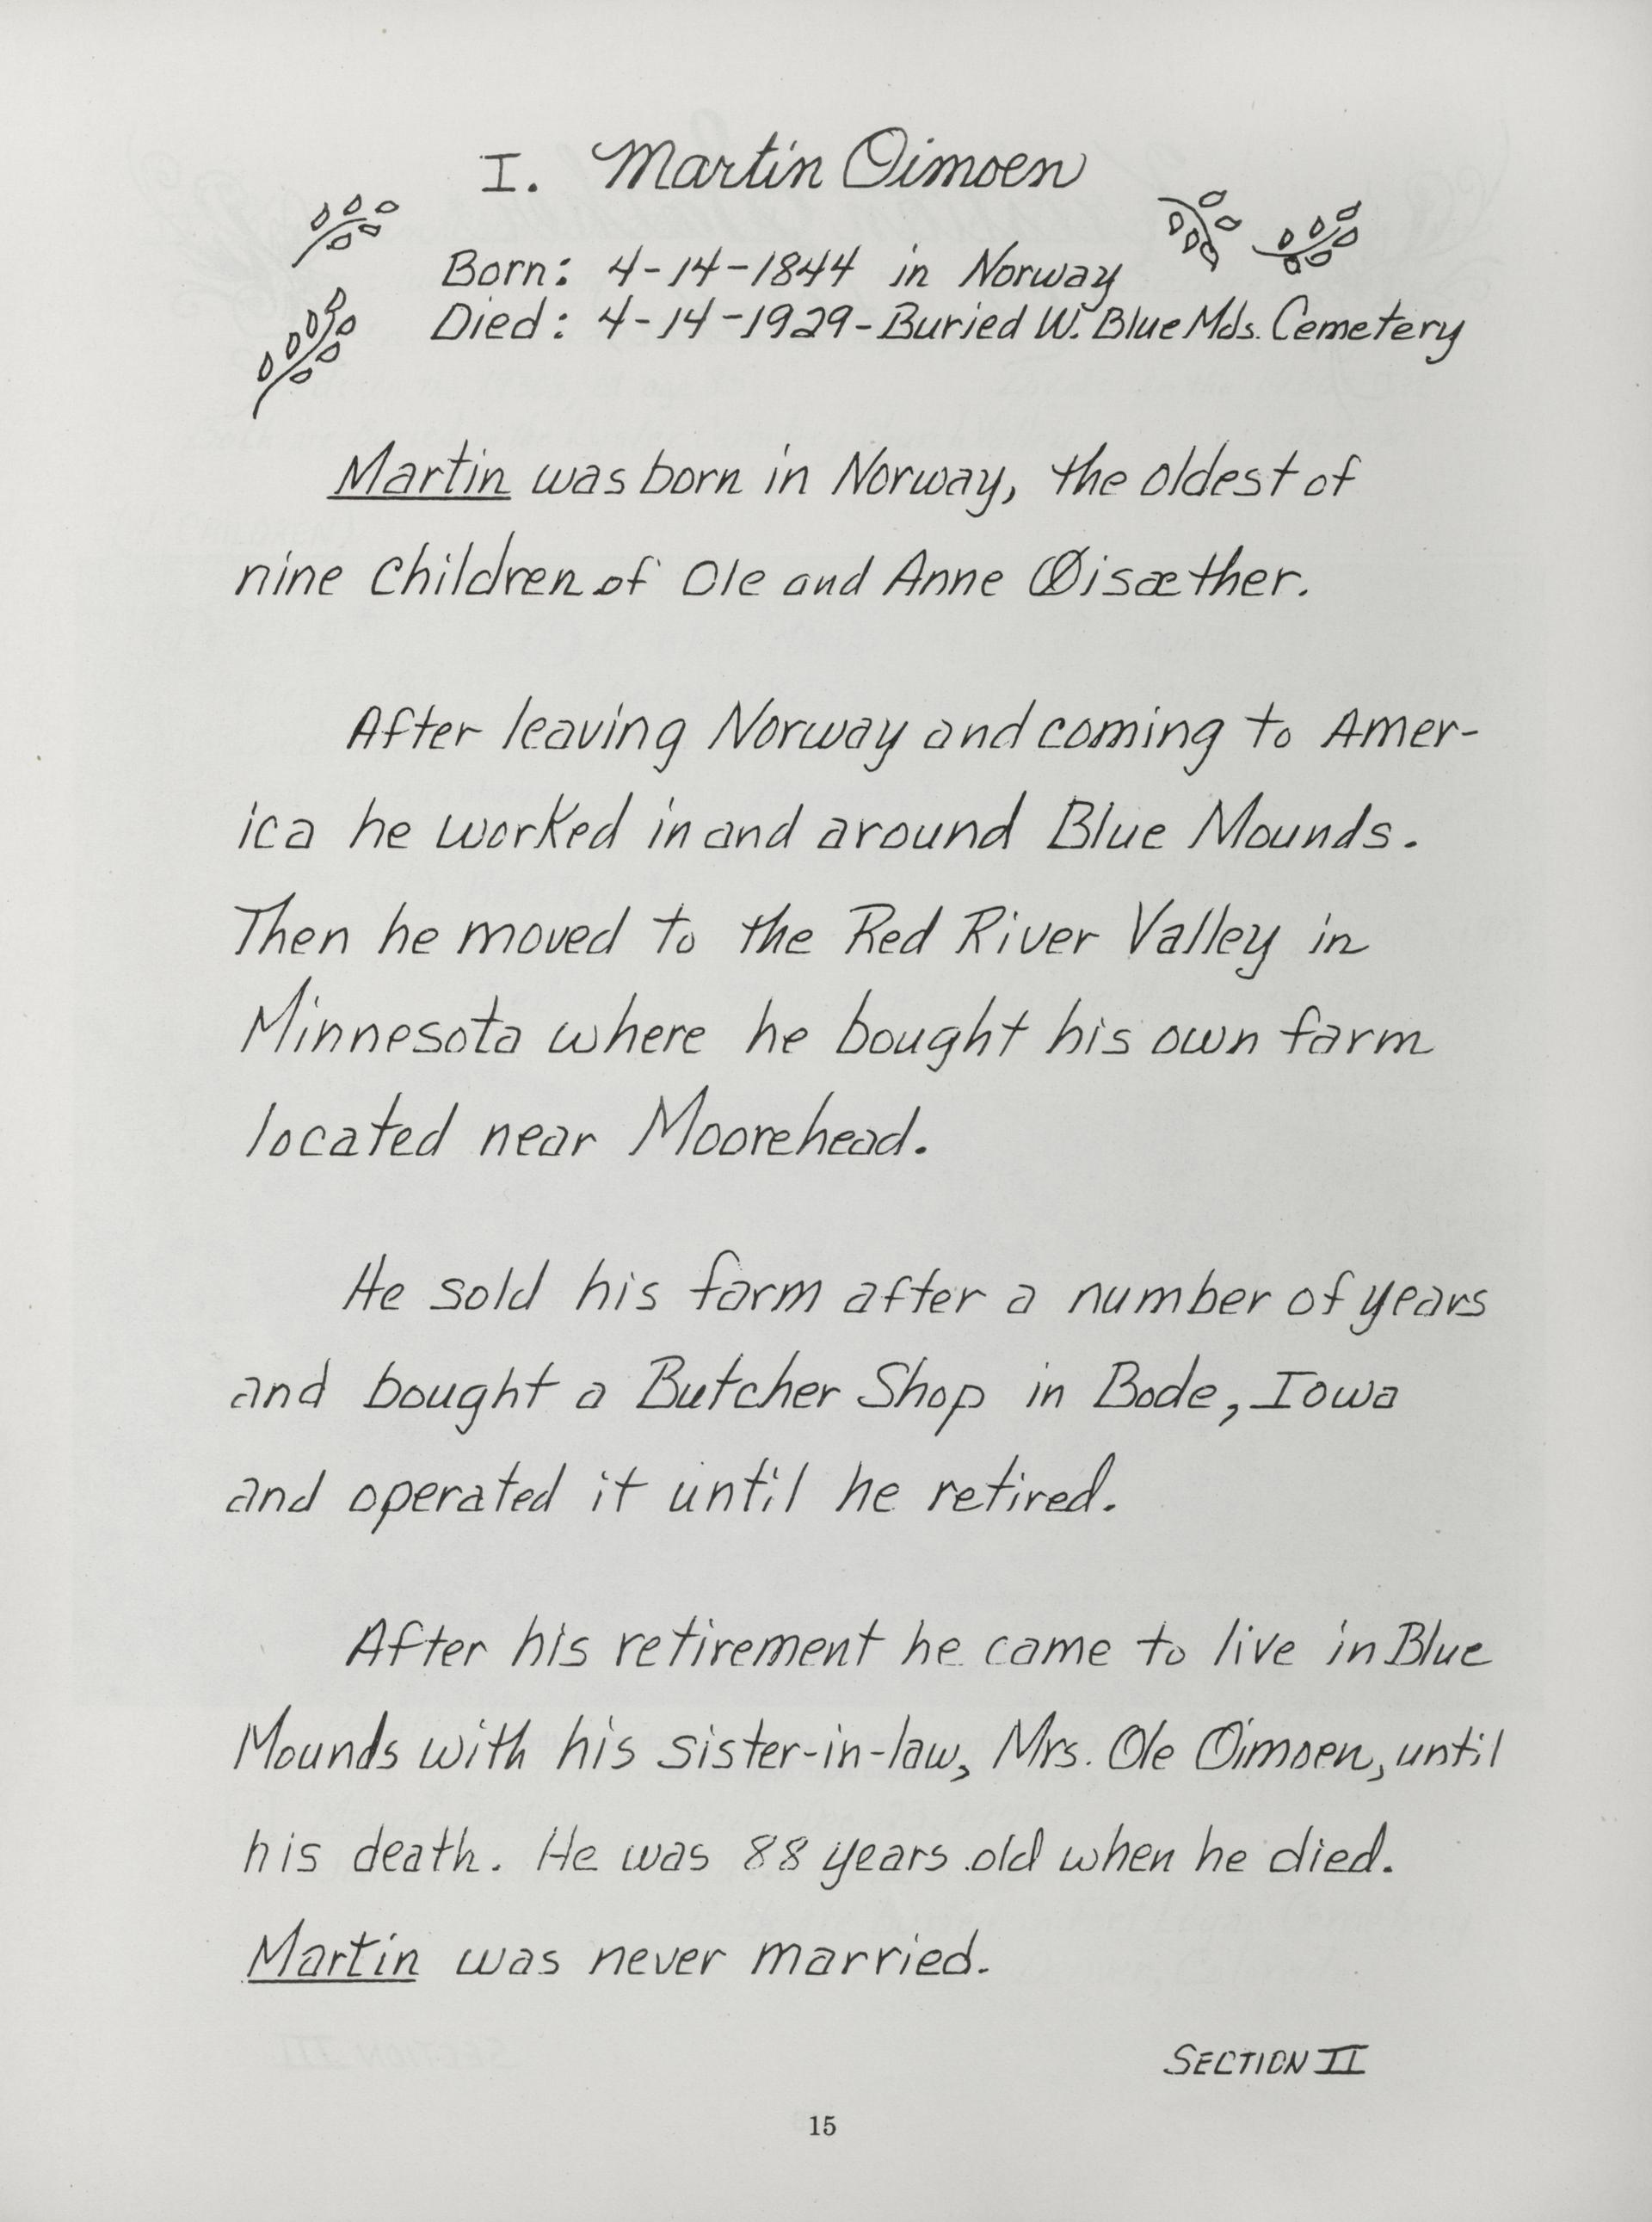 I. Martin Oimoen
Born: 4-14-1844 in Norway
Died: 4-14-1929-Buried W. Blue Mds. Cemetery
Martin was born in Norway, the oldest of
nine children of Ole and Anne Øisæther.
After leaving Norway and coming to Amer-
ica he worked in and around Blue Mounds.
Then he moved to the Red River Valley in
Minnesota where he bought his own farm
located near Moorehead.
He sold his farm after a number of years
and bought a Butcher Shop in Bode, Iowa
and operated it until he retired.
After his retirement he came to live in Blue
Mounds with his sister-in-law, Mrs. Ole Oimoen, until
his death. He was 88 years old when he died.
Martin was never married.
SECTION II
15